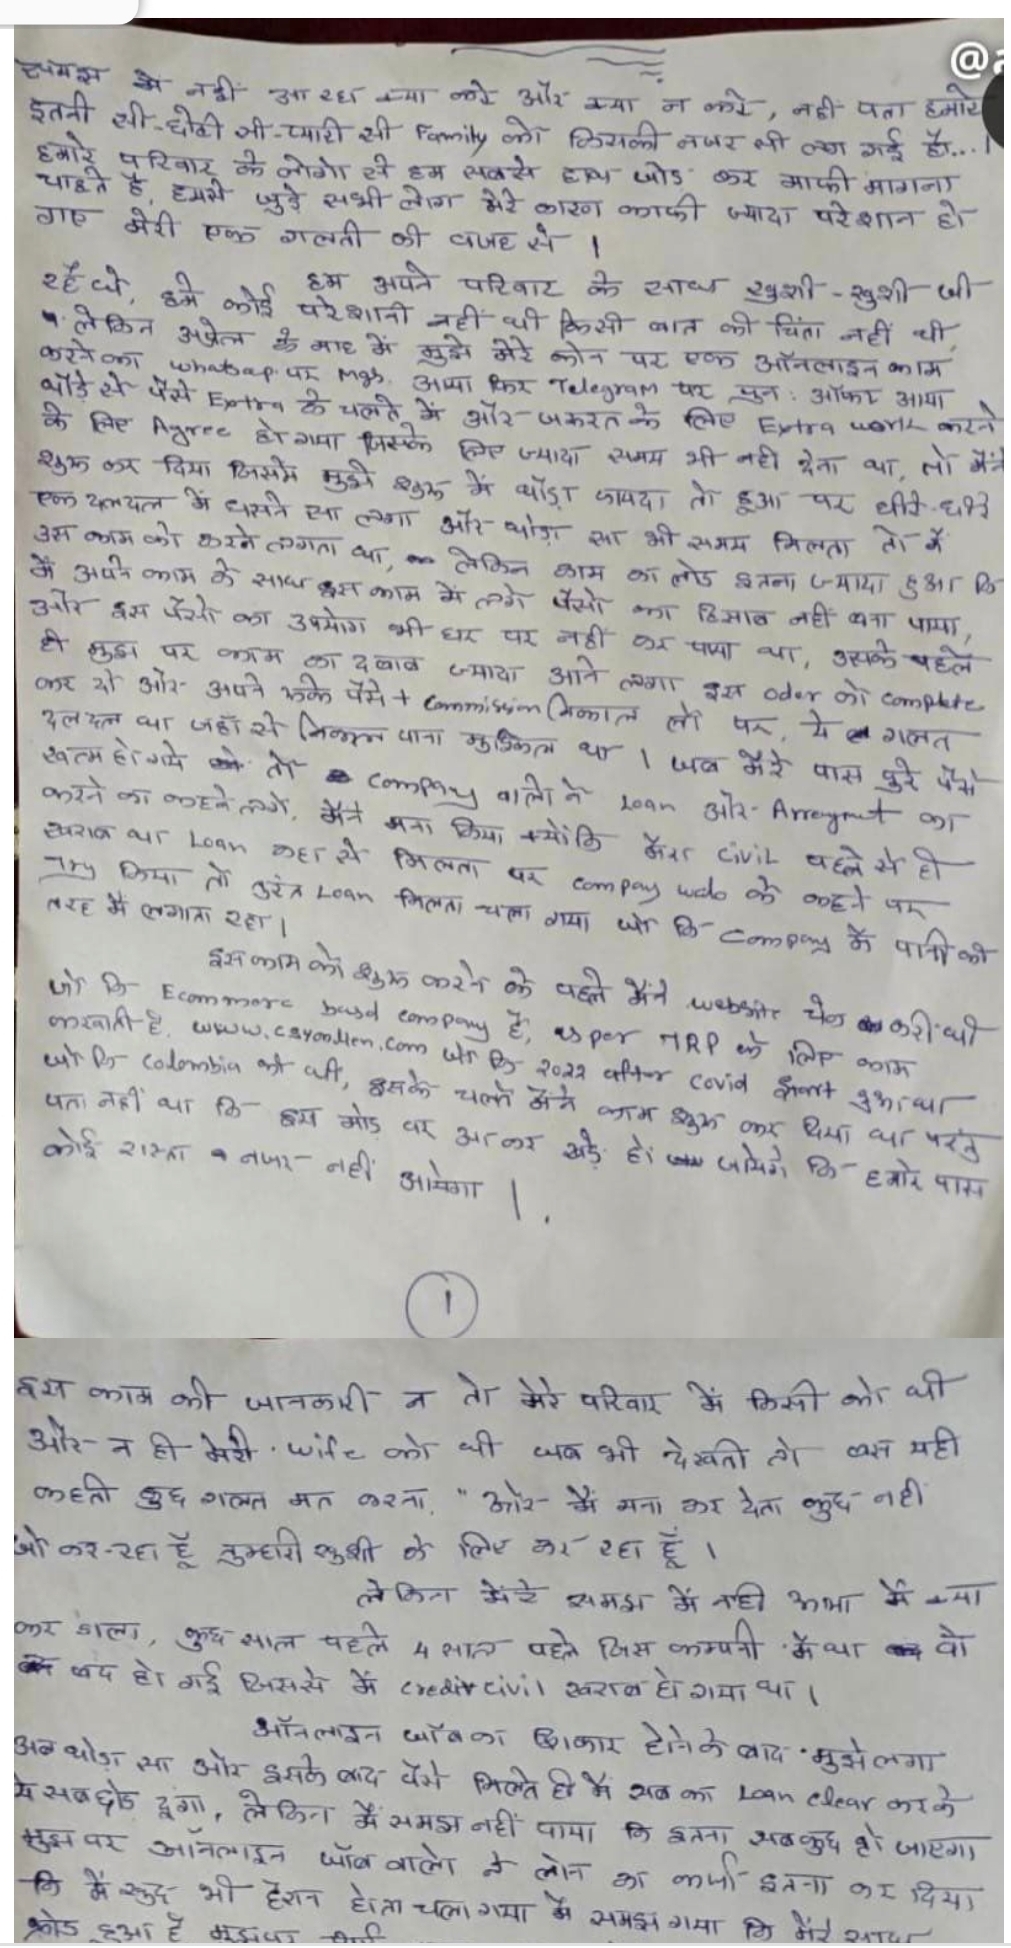 @a
समझ में नहीं आ रहा क्या करे और क्या न करे, नहीं पता हमारे
इतनी सी-छोटी सी-प्यारी सी Family को किसकी नजर सी लग गई है...।
हमारे परिवार के लोगो से हम सबसे हाथ जोड़ कर माफी मागना
चाहते है, हमसे जुड़े सभी लोग मेरे कारण काफी ज्यादा परेशान हो
गए मेरी एक गलती की वजह से ।
हम अपने परिवार के साथ खुशी-खुशी जी
रहे थे, हमे कोई परेशानी नहीं थी किसी बात की चिंता नहीं थी,
लेकिन अप्रेल के माह में मुझे मेरे फोन पर एक ऑनलाइन काम
करने का whatsap पर msg. आया फिर Telegram पर पुन: ऑफर आया
थोड़े से पैसे Extra के चलते में और जरूरत के लिए Extra work करने
के लिए Agree हो गया जिसके लिए ज्यादा समय भी नहीं देना था, तो मैंने
शुरू कर दिया जिसमे मुझे शुरू में थोड़ा फायदा तो हुआ पर धीरे-धीरे
एक दलदल में धसने सा लगा और थोड़ा सा भी समय मिलता तो में
उस काम को करने लगता था, लेकिन काम का लोड इतना ज्यादा हुआ कि
में अपने काम के साथ इस काम में लगे पैसो का हिसाब नहीं बना पाया,
और इस पैसो का उपयोग भी घर पर नहीं कर पाया था, उसके पहले
ही मुझ पर काम का दबाव ज्यादा आने लगा इस oder को complete
कर दो और अपने रुके पैसे + commission निकाल लो पर, ये गलत
दलदल था जहाँ से निकल पाना मुश्किल था । जब मेरे पास पुरे पैसे
खत्म हो गये तो company वालो ने Loan और Arregment का
करने का कहने लगे, मैंने मना किया क्योंकि मेरा civil पहले से ही
खराब था Loan कहा से मिलता पर company wale के कहने पर
Try किया तो तुरंत Loan मिलता चला गया जो कि company में पानी की
तरह में लगाता रहा ।
इस काम को शुरू करने के पहले मैंने website चेक करी थी
जो कि Ecommorc based company है, as per TRP के लिए काम
करवाती है, www.csyonllen.com जो कि 2022 after covid start हुआ था
जो कि colombia की थी, इसके चलते मैंने काम शुरू कर दिया था परंतु
पता नहीं था कि इस मोड़ पर आकर खड़े हो जायेगे कि हमारे पास
कोई रास्ता नजर नहीं आयेगा ।
1
इस काम की जानकारी न तो मेरे परिवार में किसी को थी
और न ही मेरी wife को थी जब भी देखती तो बस यही
कहती कुछ गलत मत करना, " और में मना कर देता कुछ नहीं
जो कर रहा हूँ तुम्हारी खुशी के लिए कर रहा हूँ ।
लेकिन मेरे समझ में नहीं आया में क्या
कर डाला, कुछ साल पहले 4 साल पहले जिस कम्पनी में था वो
बंद हो गई जिससे में credit civil खराब हो गया था ।
ऑनलाइन जॉब का शिकार होने के बाद मुझे लगा
अब थोड़ा सा और इसके बाद पैसे मिलते ही में सब का Loan clear करके
ये सब छोड़ दूंगा, लेकिन में समझ नहीं पाया कि इतना सबकुछ हो जाएगा
मुझ पर ऑनलाइन जॉब वालो ने लोन का कर्जा इतना कर दिया
कि में खुद भी हैरान होता चला गया में समझ गया कि मेरे साथ
फ्रोड हुआ है मुझपर